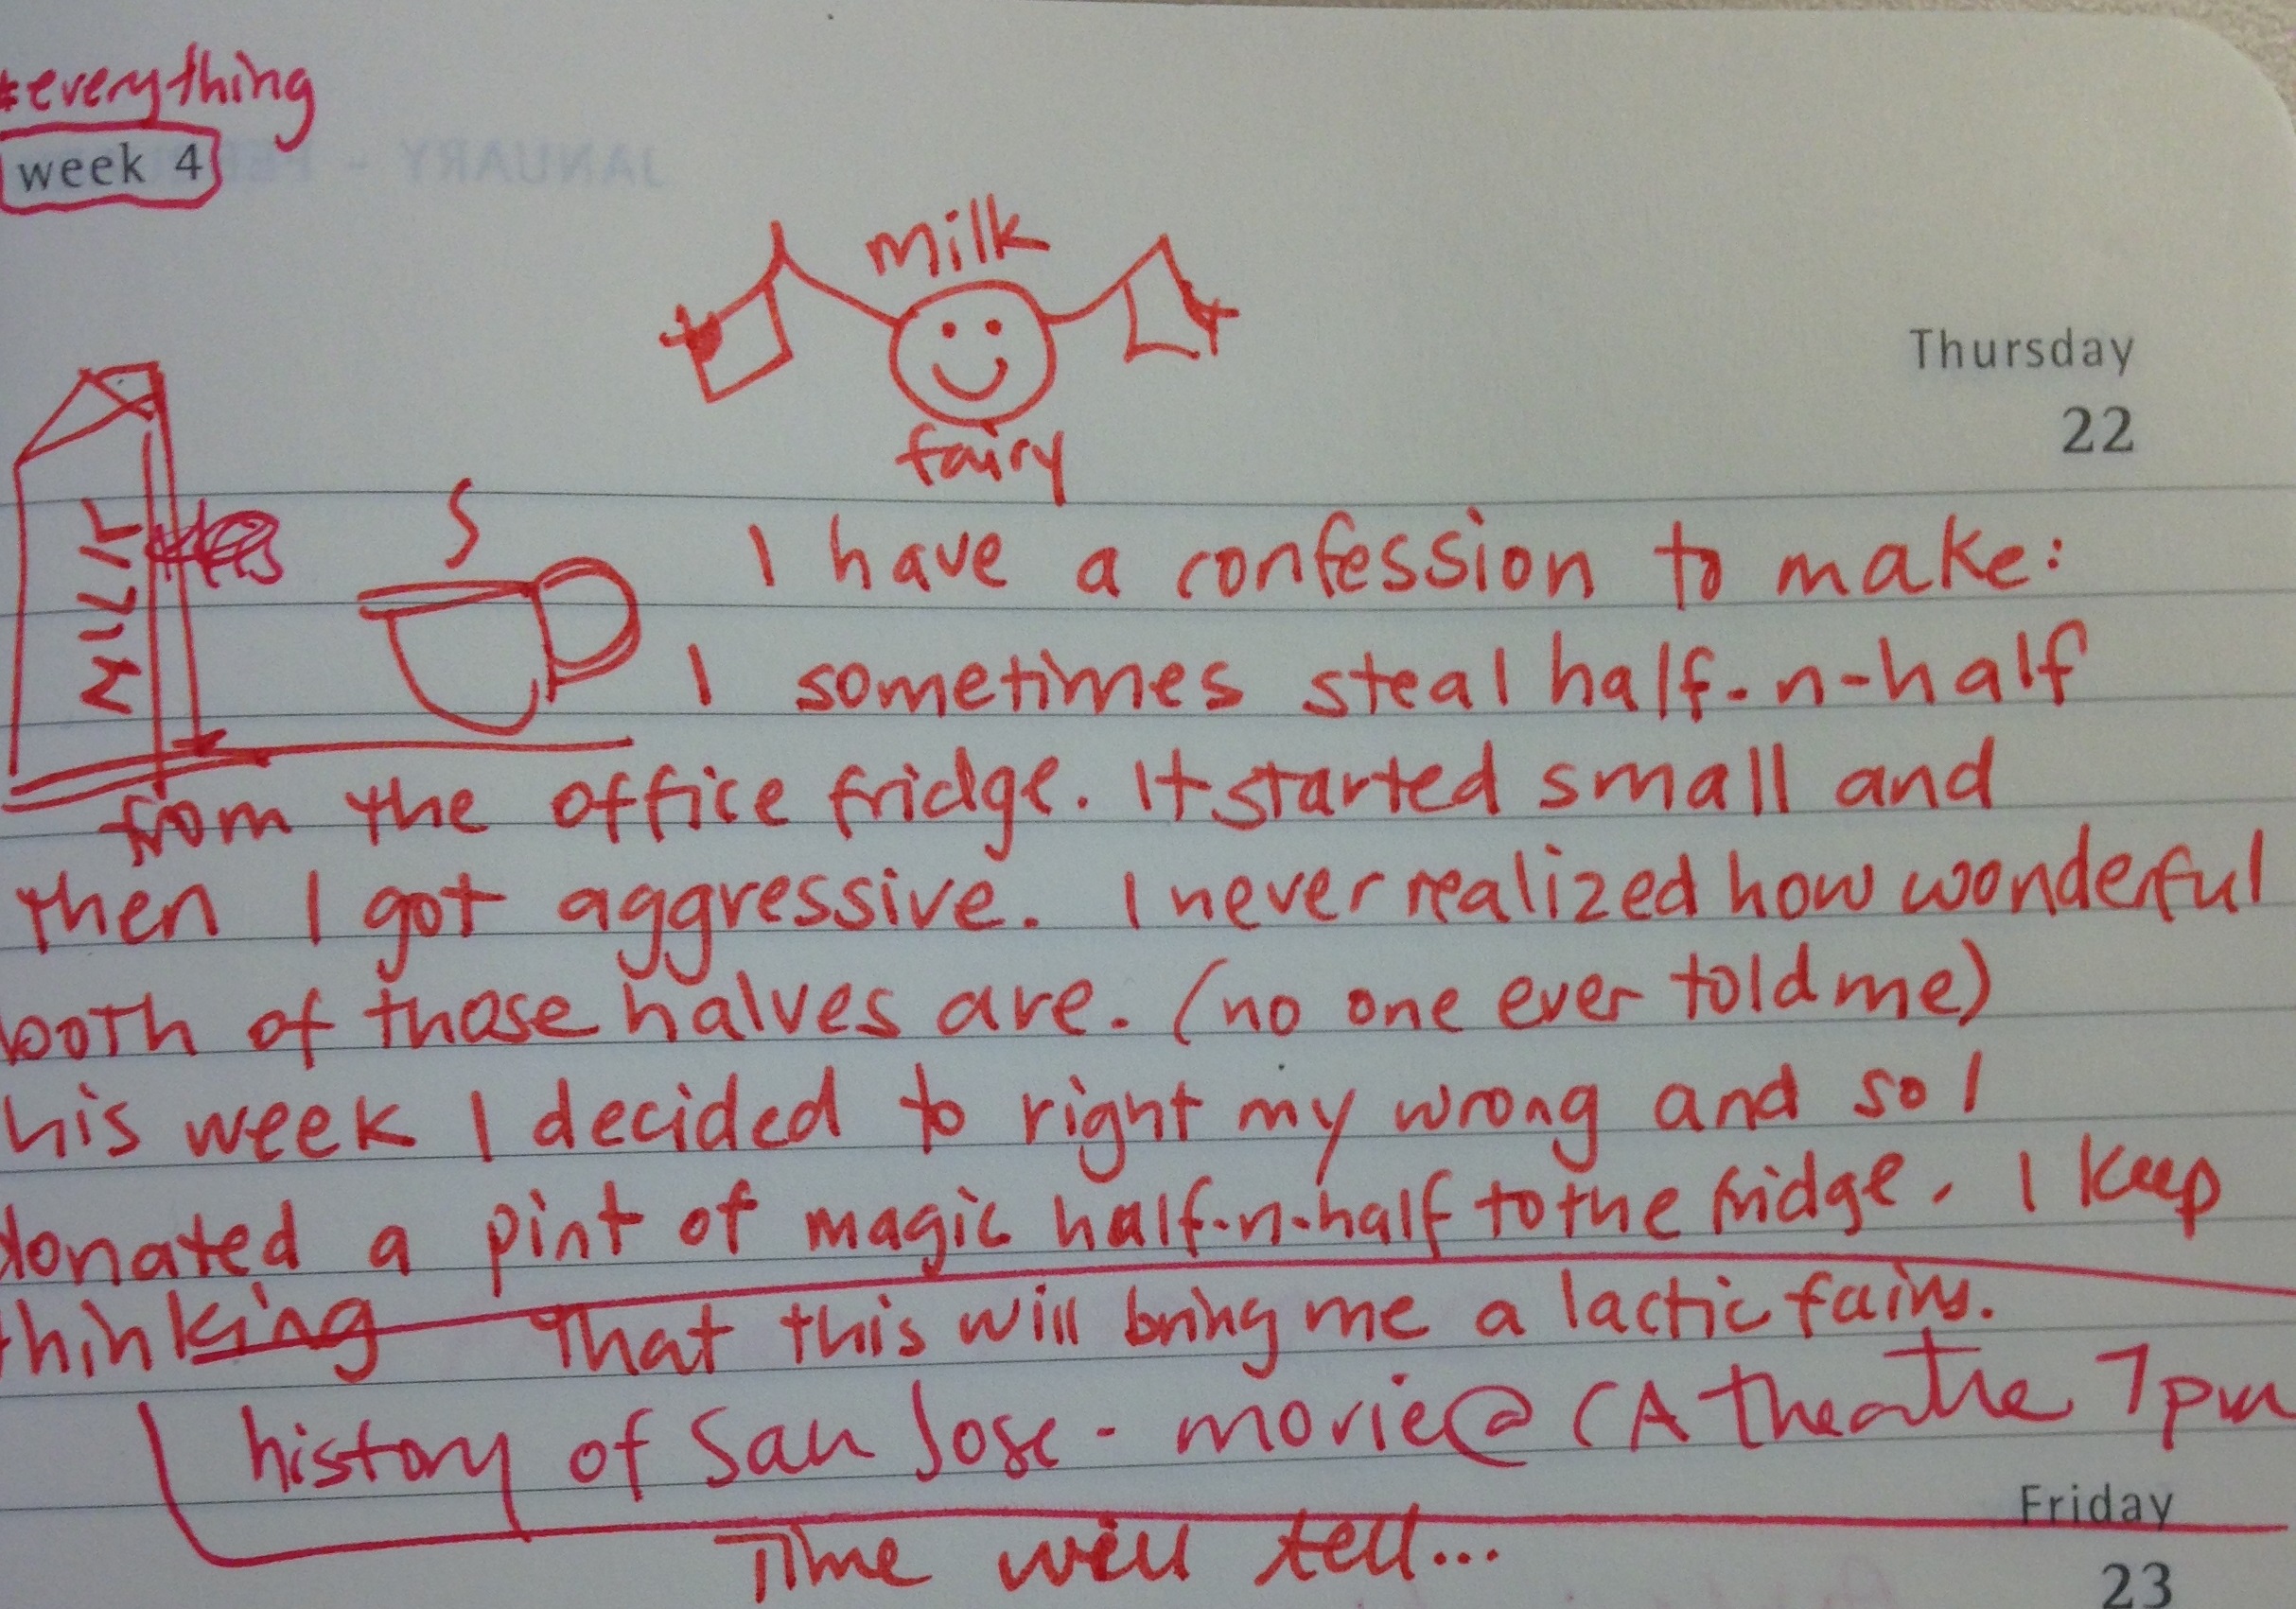 #everything
week 4
JANUARY - FEB
milk
fairy
Thursday
22
MILK
I have a confession to make:
I sometimes steal half-n-half
from the office fridge. It started small and
then I got aggressive. I never realized how wonderful
both of those halves are. (no one ever told me)
his week I decided to right my wrong and so I
donated a pint of magic half-n-half to the fridge. I keep
thinking that this will bring me a lactic fairy.
history of San Jose - movie @ CA Theatre 7pm
Friday
Time will tell...
23